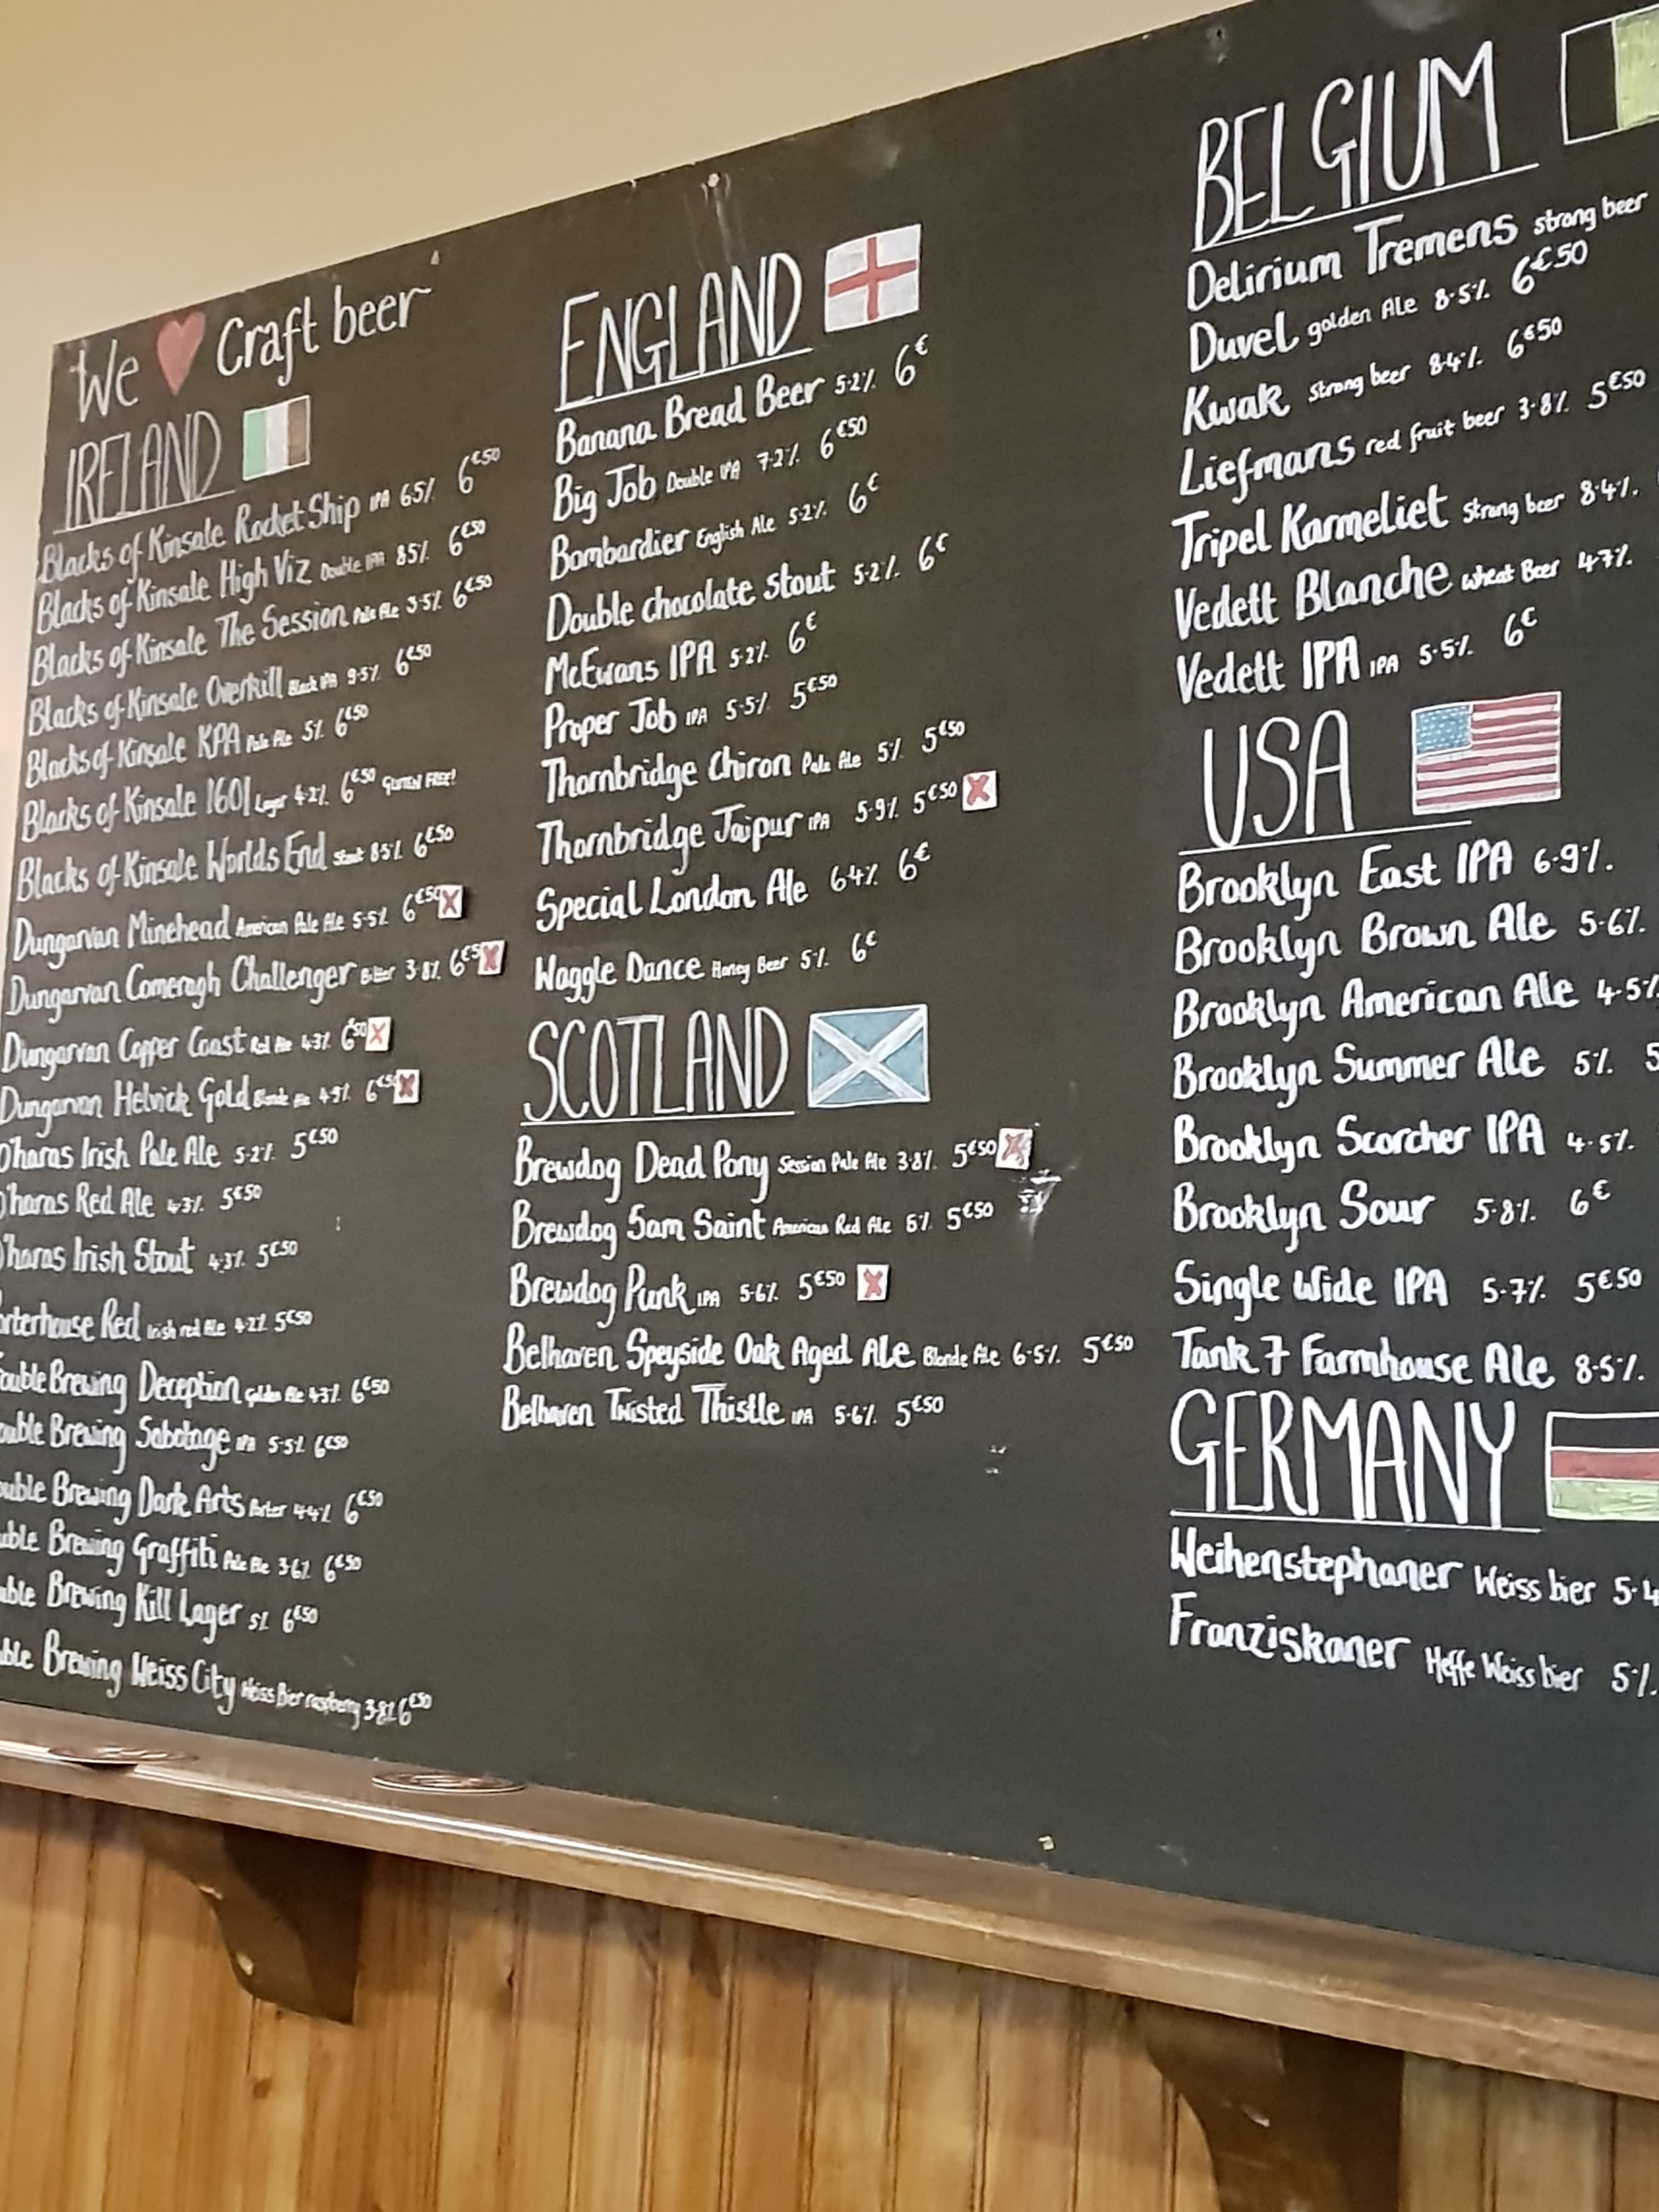 We ❤ Craft beer
IRELAND
Blacks of Kinsale Rocket Ship IPA 6.5% 6€50
Blacks of Kinsale High Viz Double IPA 8.5% 6€50
Blacks of Kinsale The Session Pale Ale 3.5% 6€50
Blacks of Kinsale Overkill Black IPA 9.5% 6€50
Blacks of Kinsale KPA Pale Ale 5% 6€50
Blacks of Kinsale 1601 Lager 4.2% 6€50 GLUTEN FREE!
Blacks of Kinsale Worlds End Stout 8.5% 6€50
Dungarvan Minehead American Pale Ale 5.5% 6€50 X
Dungarvan Comeragh Challenger Bitter 3.8% 6€5 X
Dungarvan Copper Coast Red Ale 4.3% 6€50 X
Dungarvan Helvick Gold Blonde Ale 4.9% 6€50 X
O'haras Irish Pale Ale 5.2% 5€50
O'haras Red Ale 4.3% 5€50
O'haras Irish Stout 4.3% 5€50
orterhouse Red Irish red Ale 4.2% 5€50
ouble Brewing Deception Golden Ale 4.3% 6€50
ouble Brewing Sabotage IPA 5.5% 6€50
ouble Brewing Dark Arts Porter 4.4% 6€50
uble Brewing Graffiti Pale Ale 3.6% 6€50
uble Brewing Kill Lager 5% 6€50
ble Brewing Weiss City Weiss Bier raspberry 3.8% 6€50
ENGLAND
Banana Bread Beer 5.2% 6€
Big Job Double IPA 7.2% 6€50
Bombardier English Ale 5.2% 6€
Double chocolate stout 5.2% 6€
McEwans IPA 5.2% 6€
Proper Job IPA 5.5% 5€50
Thornbridge Chiron Pale Ale 5% 5€50
Thornbridge Jaipur IPA 5.9% 5€50 X
Special London Ale 6.4% 6€
Waggle Dance Honey Beer 5% 6€
SCOTLAND
Brewdog Dead Pony Session Pale Ale 3.8% 5€50 X
Brewdog 5am Saint American Red Ale 5% 5€50
Brewdog Punk IPA 5.6% 5€50 X
Belhaven Speyside Oak Aged Ale Blonde Ale 6.5% 5€50
Belhaven Twisted Thistle IPA 5.6% 5€50
BELGIUM
Delirium Tremens strong beer
Duvel golden Ale 8.5% 6€50
Kwak strong beer 8.4% 6€50
Liefmans red fruit beer 3.8% 5€50
Tripel Karmeliet strong beer 8.4%
Vedett Blanche wheat Beer 4.7%
Vedett IPA IPA 5.5% 6€
USA
Brooklyn East IPA 6.9%
Brooklyn Brown Ale 5.6%
Brooklyn American Ale 4.5%
Brooklyn Summer Ale 5% 5
Brooklyn Scorcher IPA 4.5%
Brooklyn Sour 5.8% 6€
Single Wide IPA 5.7% 5€50
Tank 7 Farmhouse Ale 8.5%
GERMANY
Weihenstephaner Weiss bier 5.4
Franziskaner Heffe Weiss bier 5%